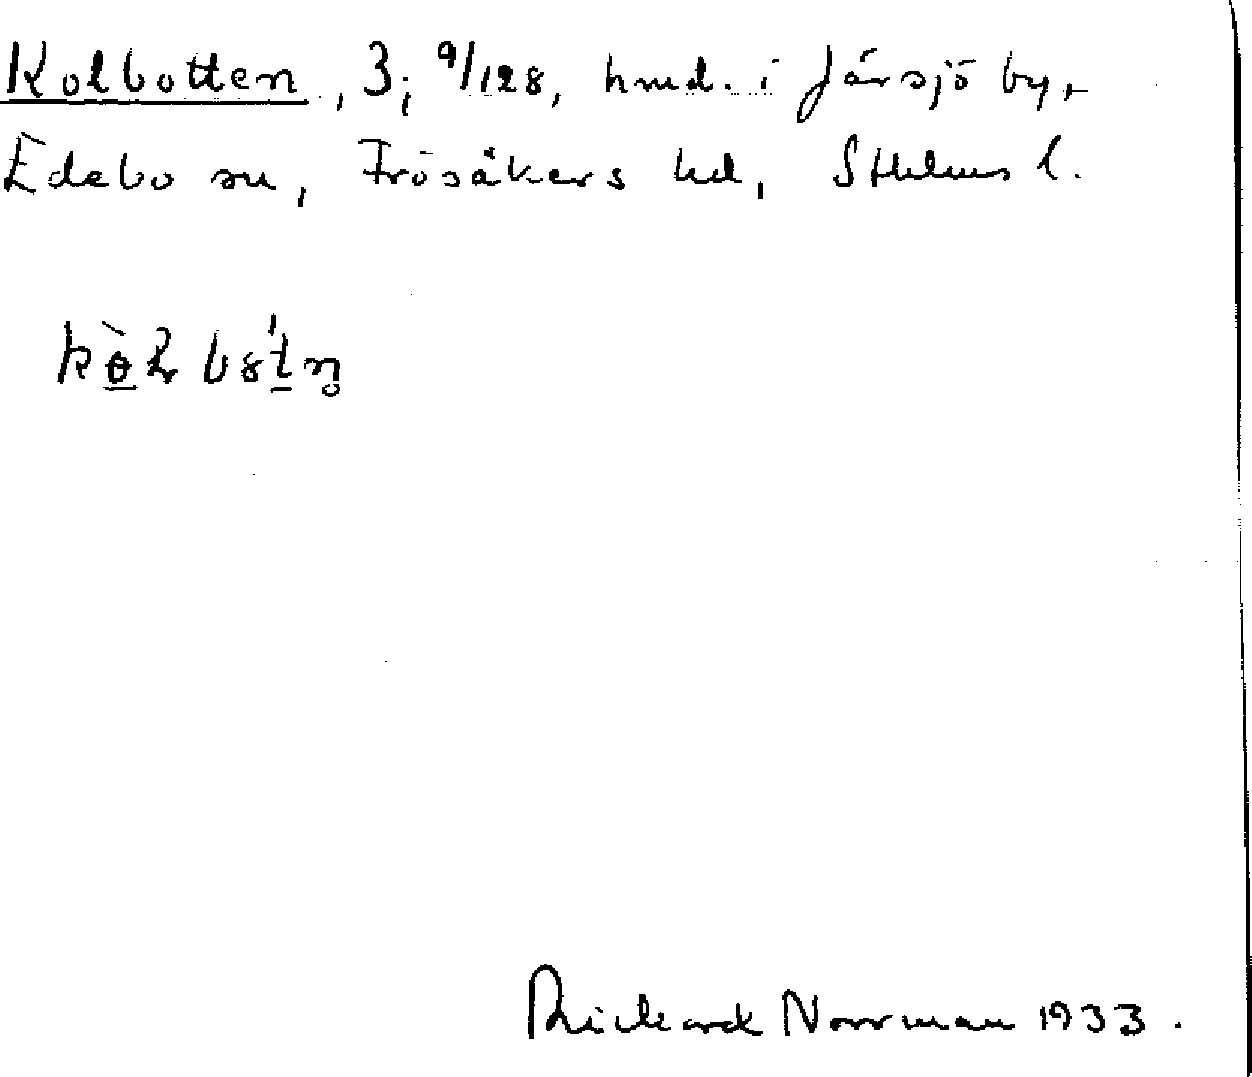 Kolbotten, 3; 9/128, hmd. i Järsjö by,
Edebo sn, Frösåkers hd, Sthlms l.
Rickard Norrman 1933.